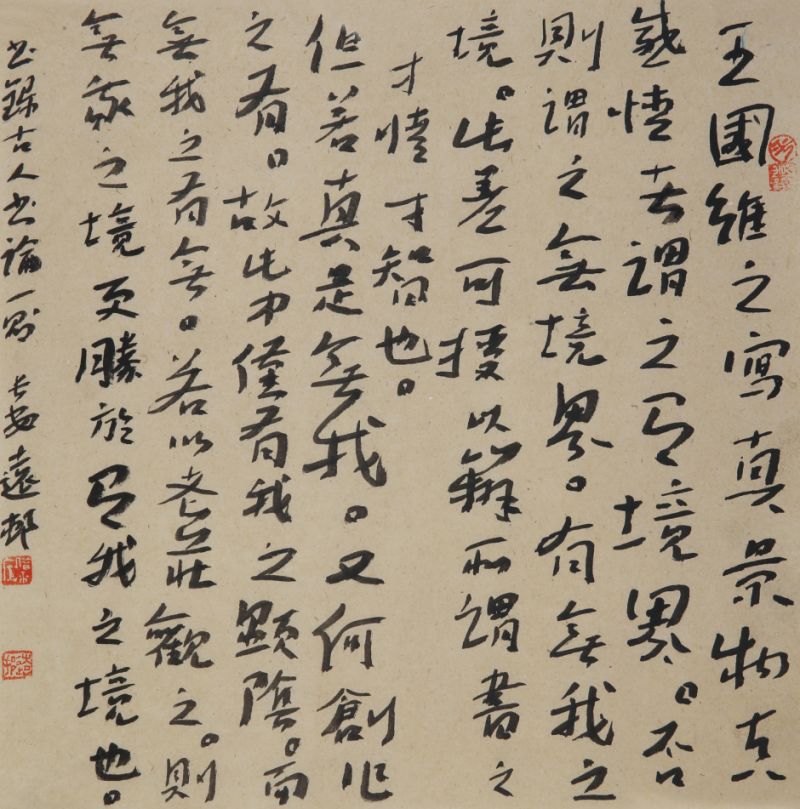 王國維之寫真景物真
感情者謂之有境界。否
則謂之無境界。有無我之
境。此差可援以解所謂書之
才情才智也。
但若真是無我。又何創作
之有。故此中僅有我之顯隱。而
無我之有無。若以老莊觀之。則
無我之境更勝於有我之境也。
書錄古人書論一則 長安遠村